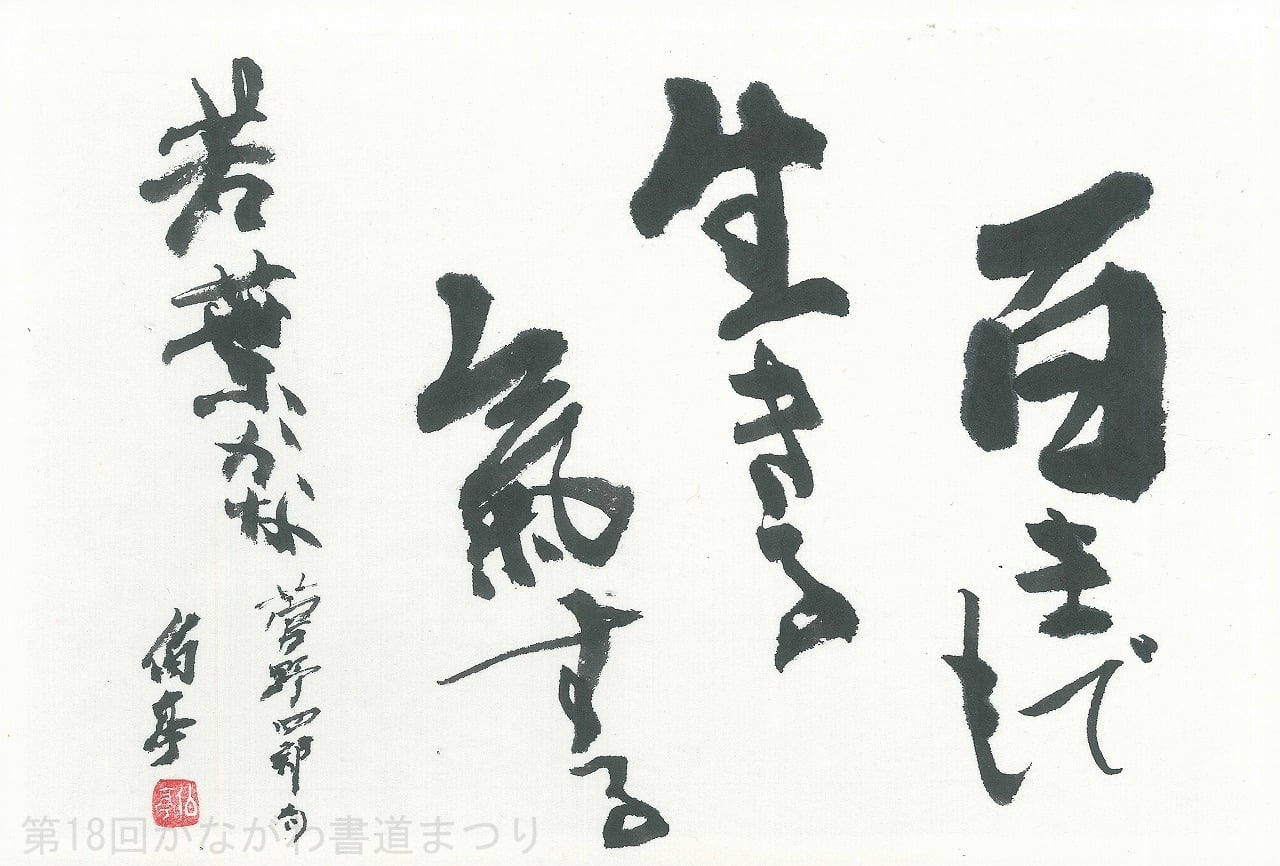 百までも
生きる
氣する
若葉かな
菅野四郎句
佰亭
佰亭
第18回かながわ書道まつり